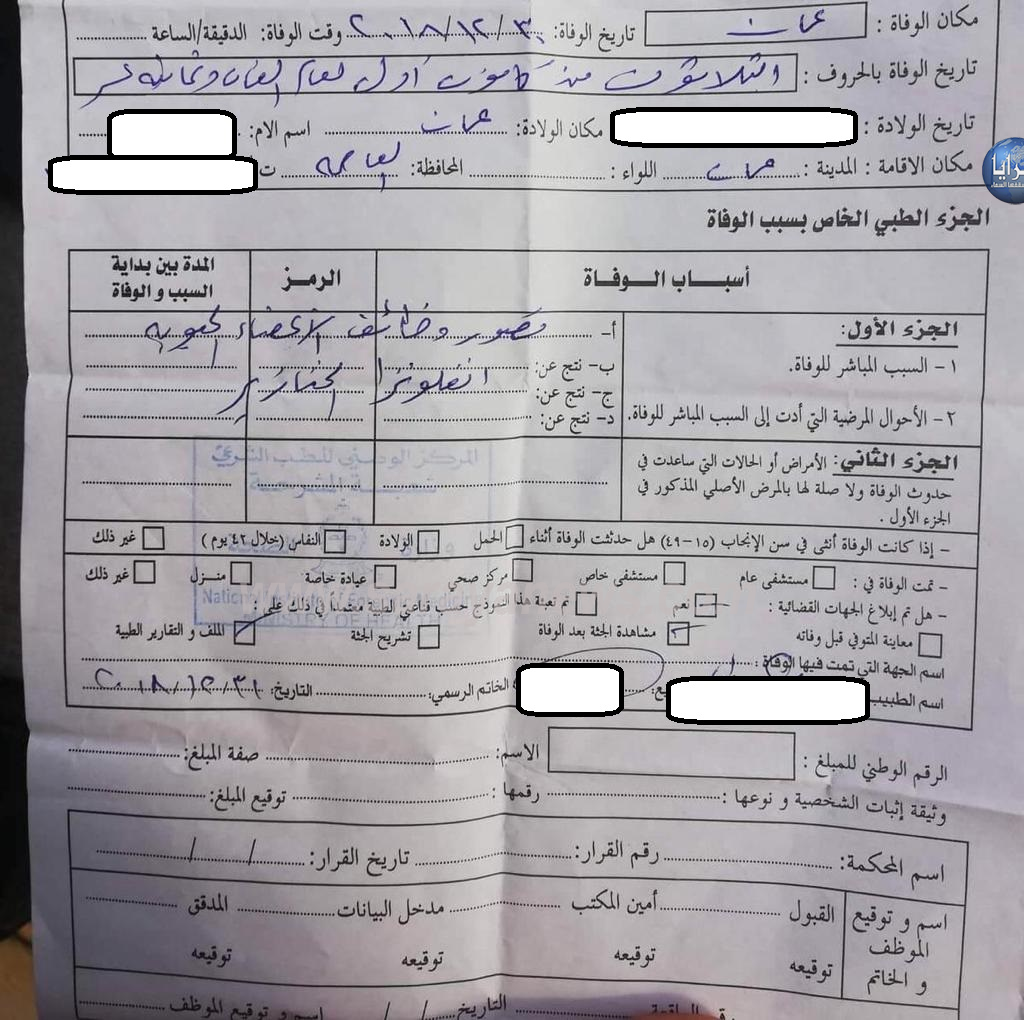 مكان الوفاة : عمان تاريخ الوفاة: ٢٠١٨/١٢/٣٠ وقت الوفاة: الدقيقة/الساعة
تاريخ الوفاة بالحروف : الثلاثون من كانون أول لعام الفان وثمانية عشر
تاريخ الولادة : مكان الولادة: عمان اسم الام:
مكان الاقامة : المدينة : عمان اللواء : المحافظة: العاصمة ت
رايا
الجزء الطبي الخاص بسبب الوفاة
أسباب الـوفـاة الرمـز المدة بين بداية السبب و الوفاة
الجزء الأول: أ- قصور وظائف الأعضاء الحيوية
١- السبب المباشر للوفاة. ب- نتج عن: انفلونزا الخنازير
ج- نتج عن:
٢- الأحوال المرضية التي أدت إلى السبب المباشر للوفاة. د- نتج عن:
المركز الوطني للطب الشرعي
شعبة الشرعية
الجزء الثاني: الأمراض أو الحالات التي ساعدت في
حدوث الوفاة ولا صلة لها بالمرض الأصلي المذكور في
الجزء الأول .
- إذا كانت الوفاة أنثى في سن الإنجاب (١٥-٤٩) هل حدثت الوفاة أثناء الحمل الولادة النفاس (خلال ٤٢ يوم) غير ذلك
- تمت الوفاة في : مستشفى عام مستشفى خاص مركز صحي عيادة خاصة منـزل غير ذلك
National Institute of Forensic Medicine
- هل تم إبلاغ الجهات القضائية : نعم تم تعبئة هذا النموذج حسب قناعتي الطبية معتمداً في ذلك على :
MINISTRY OF HEALTH
معاينة المتوفي قبل وفاته مشاهدة الجثة بعد الوفاة تشريح الجثة الملف و التقارير الطبية
اسم الجهة التي تمت فيها الوفاة :
اسم الطبيب الخاتم الرسمي: التاريخ: ٢٠١٨/١٢/٣١
الرقم الوطني للمبلغ : الاسم: صفة المبلغ:
وثيقة إثبات الشخصية و نوعها : رقمها : توقيع المبلغ:
اسم المحكمة: رقم القرار: تاريخ القرار: / /
اسم و توقيع الموظف و الخاتم القبول أمين المكتب مدخل البيانات المدقق
توقيعه توقيعه توقيعه توقيعه
رقم الواقعة التاريخ / / اسم و توقيع الموظف